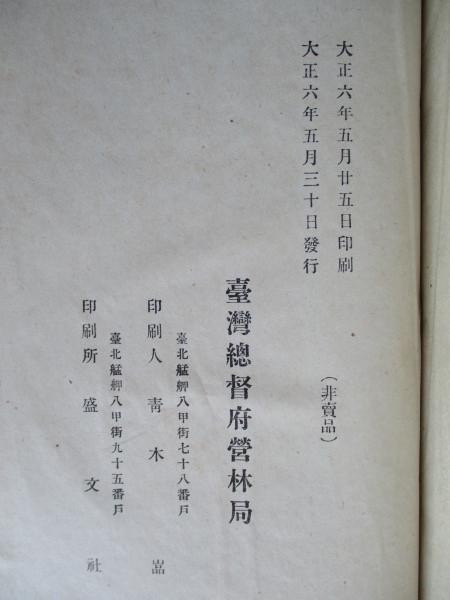 大正六年五月廿五日印刷
大正六年五月三十日發行
(非賣品)
臺灣總督府營林局
臺北艋舺八甲街七十八番戶
印刷人 靑木 嵓
臺北艋舺八甲街九十五番戶
印刷所 盛文社